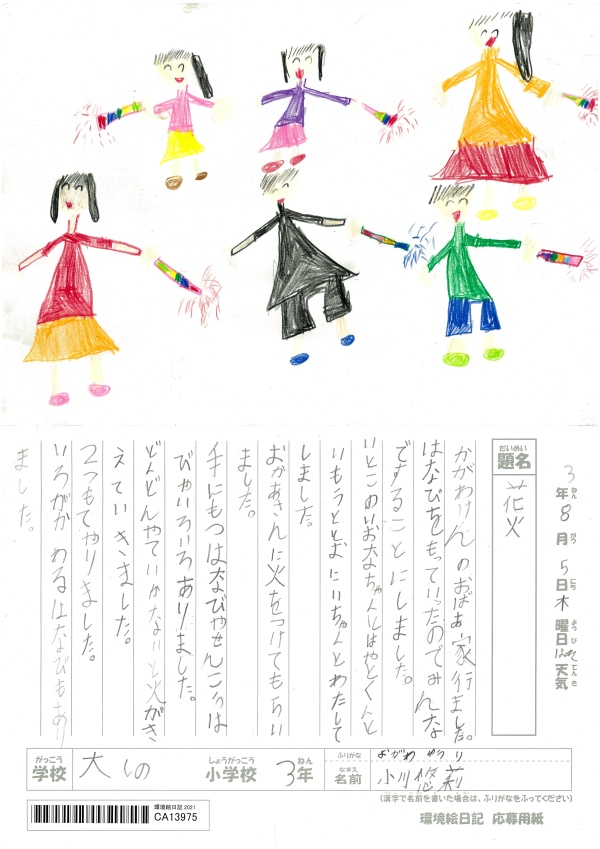 3年ねん8月がつ5日にち木曜日ようびはれ天気てんき
題名だいめい
花火
かがわけんのおばあ家行ました。
はなびをもっていったのでみんな
ですることにしました。
いとこのいおなちゃんとはやとくんと
いもうととおにいちゃんとわたしで
しました。
おかあさんに火をつけてもらい
ました。
手にもつはなびやせんこうは
びやいろいろありました。
どんどんやていかないと火がき
えていきました。
2つもてやりました。
いろがかわるはなびもあり
ました。
がっこう学校 大しの しょうがっこう小学校 3年ねん
ふりがな おがわ ゆうり
なまえ名前 小川悠莉
(漢字で名前を書いた場合は、ふりがなをふってください)
環境絵日記 2021
CA13975
環境絵日記 応募用紙